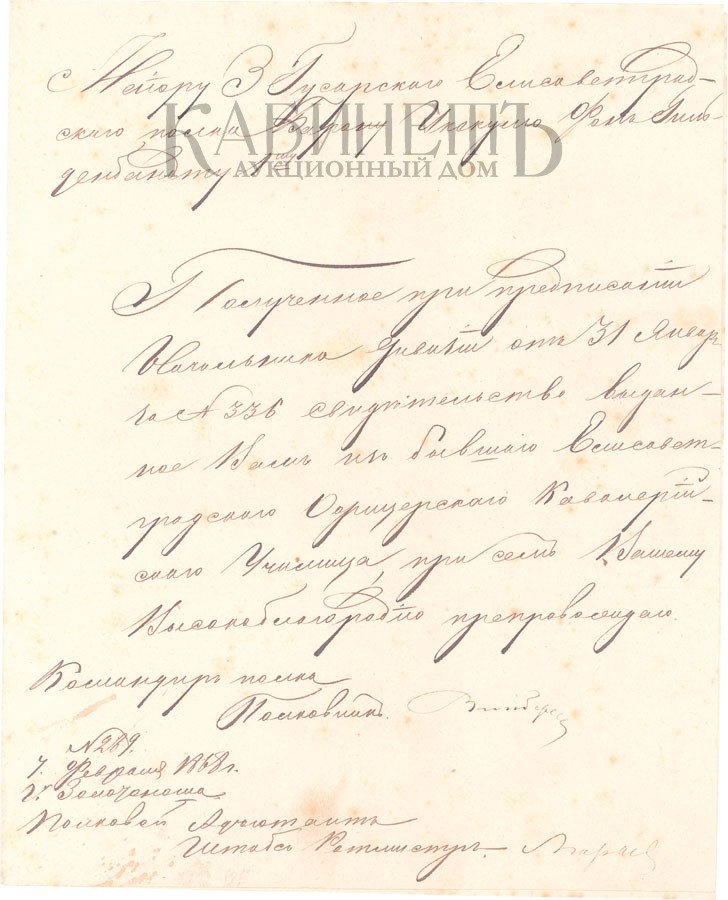 Маіору 3 Гусарскаго Елисаветград-
скаго полка Барону Икскулю Фонъ Гиль-
денбандту 1му
КАБИНЕТЪ
АУКЦИОННЫЙ ДОМ
Полученное при предписаніи
Начальника дивизіи отъ 31 Январ
ча № 336 свидѣтельство выдан-
ное Вамъ изъ бывшаго Елисавет-
градскаго Офицерскаго Кавалерій-
скаго Училища, при семъ Вашему
Высокоблагородію препровождаю.
Командиръ полка
Полковникъ. Винбергъ
№ 289.
7. Февраля 1868 г.
г. Золотоноша.
Полковой Адъютантъ
Штабсъ Ротмистръ